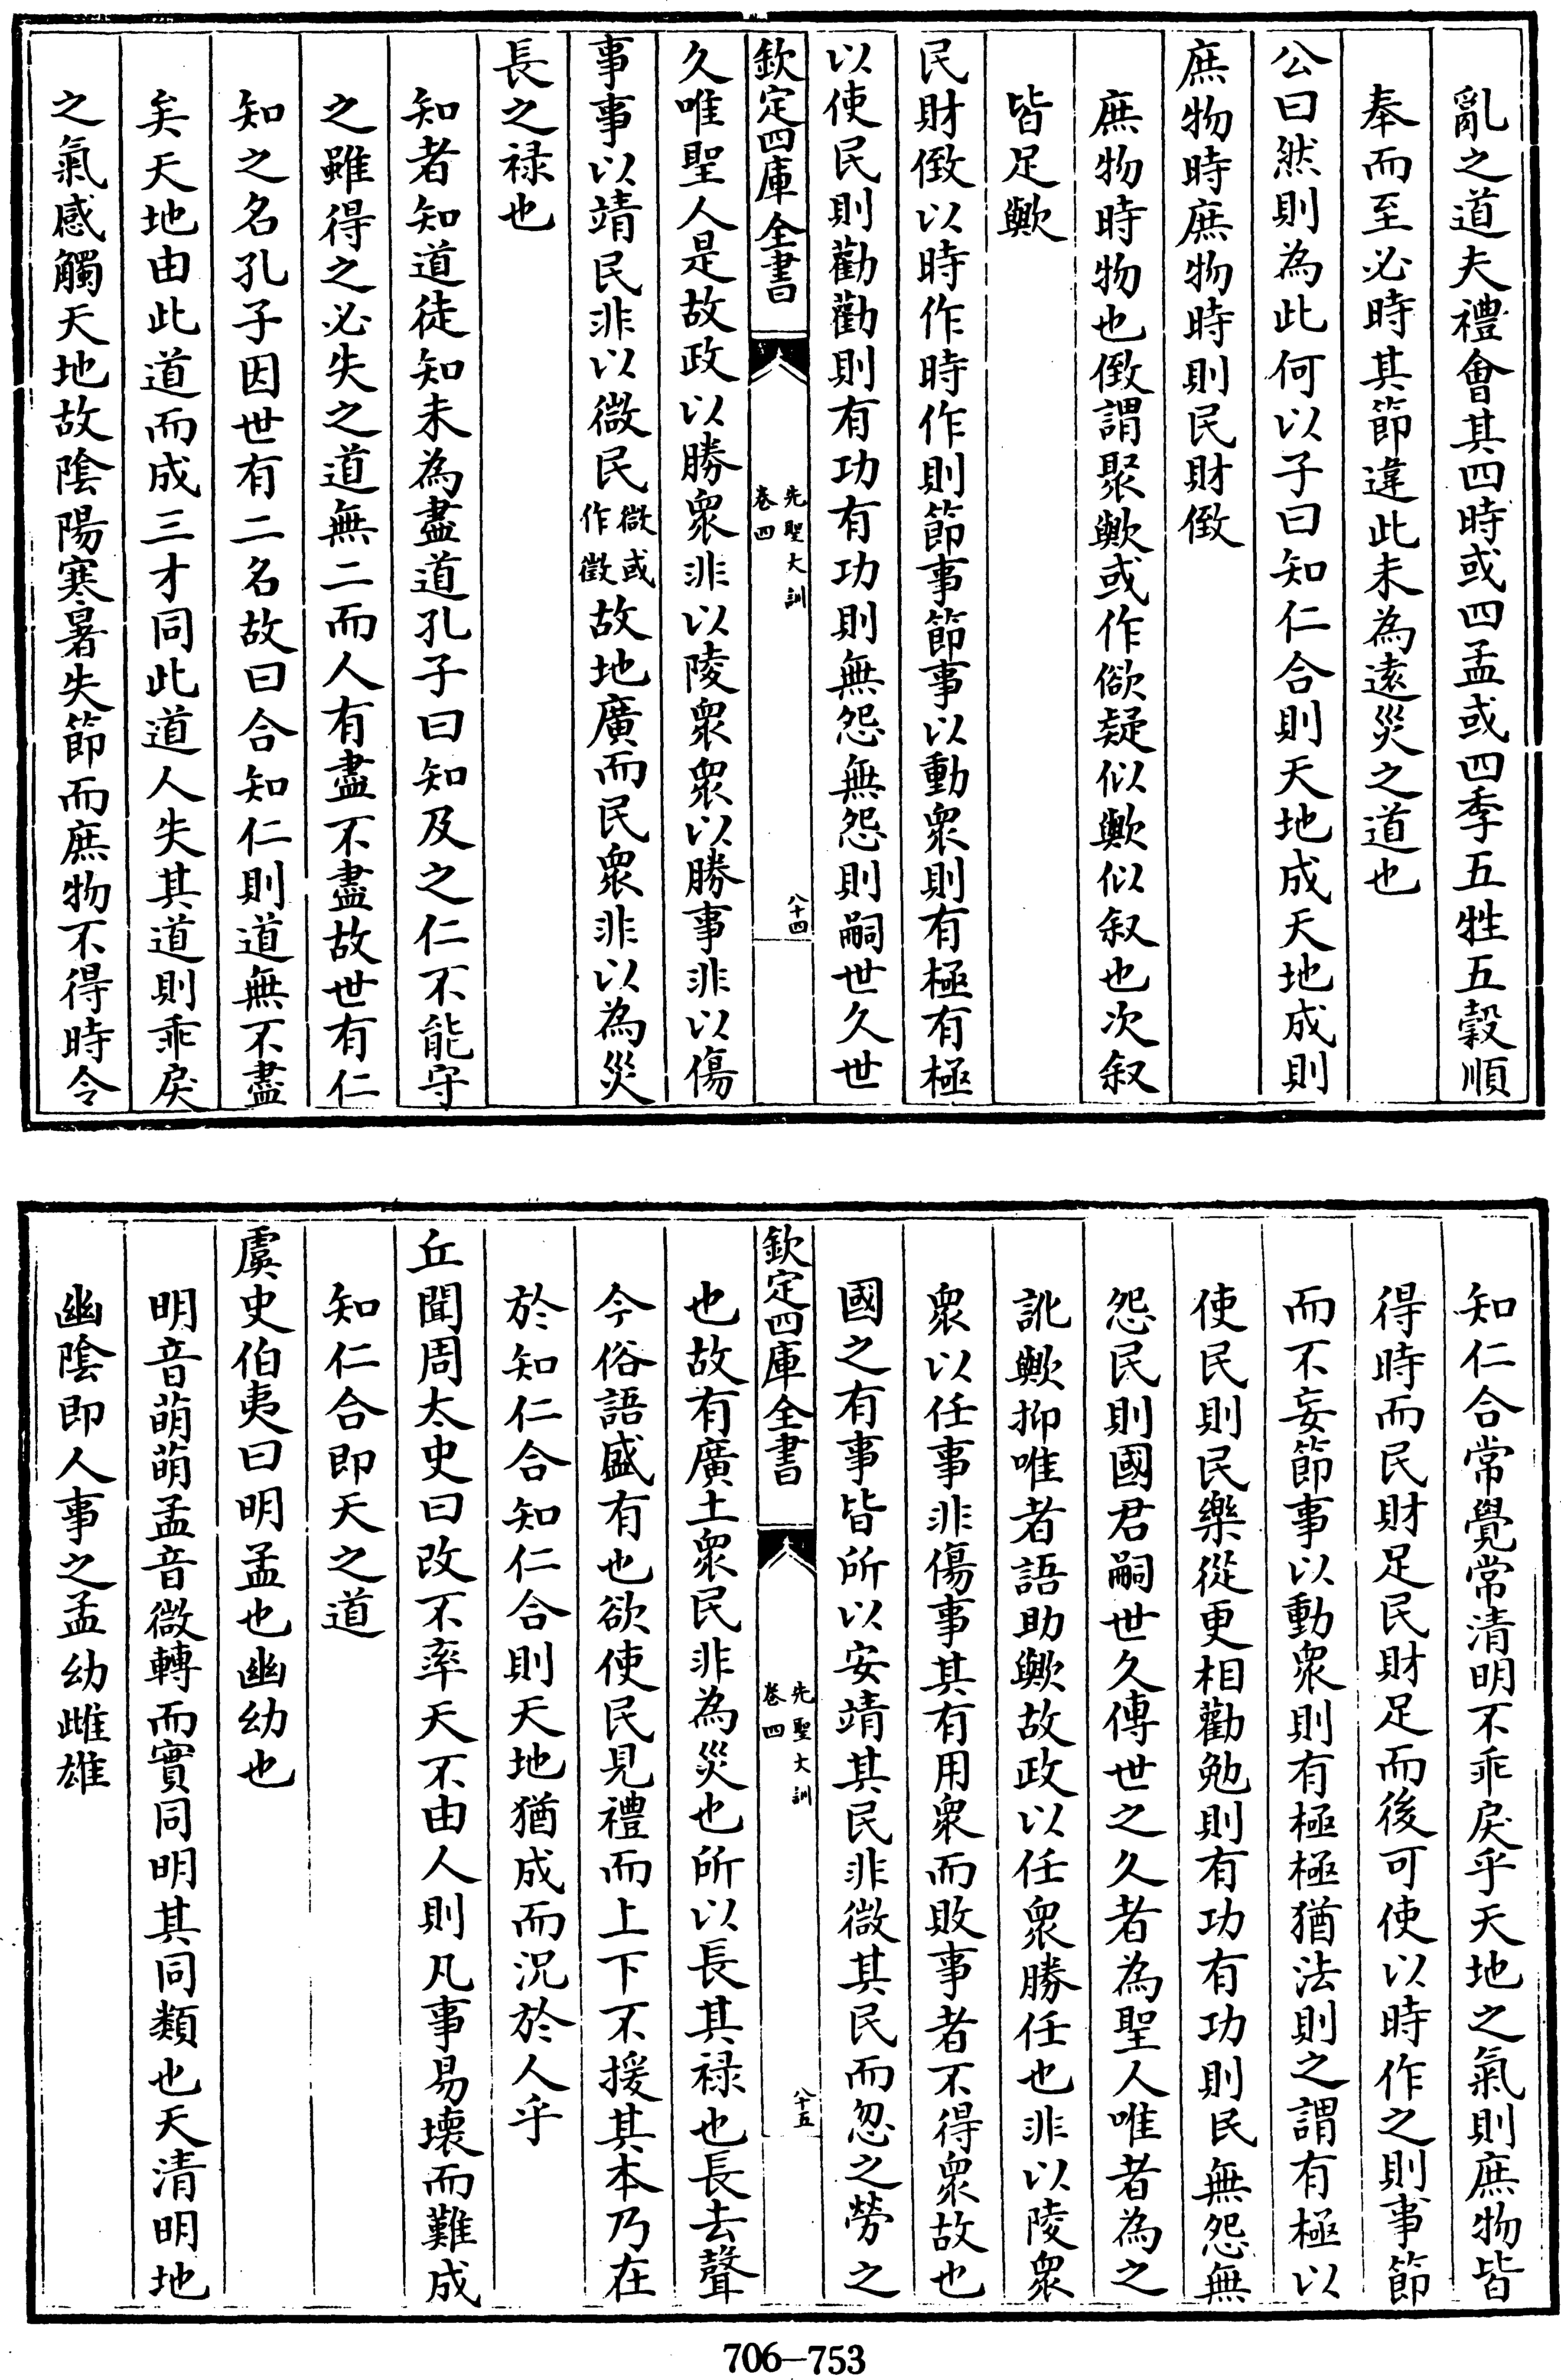 亂之道夫禮會其四時或四孟或四季五牲五穀順
奉而至必時其節違此未為遠災之道也
公曰然則為此何以子曰知仁合則天地成天地成則
庶物時庶物時則民財儆
庶物時物也儆謂聚歟或作欲疑似歟似叙也次叙
皆足歟
民財儆以時作時作則節事節事以動衆則有極有極
以使民則勸勸則有功有功則無怨無怨則嗣世久世
欽定四庫全書
先聖大訓
卷四
八十四
久唯聖人是故政以勝衆非以陵衆衆以勝事非以傷
事事以靖民非以微民微或作徵故地廣而民衆非以為災
長之禄也
知者知道徒知未為盡道孔子曰知及之仁不能守
之雖得之必失之道無二而人有盡不盡故世有仁
知之名孔子因世有二名故曰合知仁則道無不盡
矣天地由此道而成三才同此道人失其道則乖戾
之氣感觸天地故陰陽寒暑失節而庶物不得時令
知仁合常覺常清明不乖戾乎天地之氣則庶物皆
得時而民財足民財足而後可使以時作之則事節
而不妄節事以動衆則有極極猶法則之謂有極以
使民則民樂從更相勸勉則有功有功則民無怨無
怨民則國君嗣世久傳世之久者為聖人唯者為之
訛歟抑唯者語助歟故政以任衆勝任也非以陵衆
衆以任事非傷事其有用衆而敗事者不得衆故也
國之有事皆所以安靖其民非微其民而忽之勞之
欽定四庫全書
先聖大訓
卷四
八十五
也故有廣土衆民非為災也所以長其禄也長去聲
今俗語盛有也欲使民見禮而上下不援其本乃在
於知仁合知仁合則天地猶成而況於人乎
丘聞周太史曰改不率天不由人則凡事易壞而難成
知仁合即天之道
虞史伯夷曰明孟也幽幼也
明音萌萌孟音微轉而實同明其同類也天清明地
幽陰即人事之孟幼雌雄
706—753